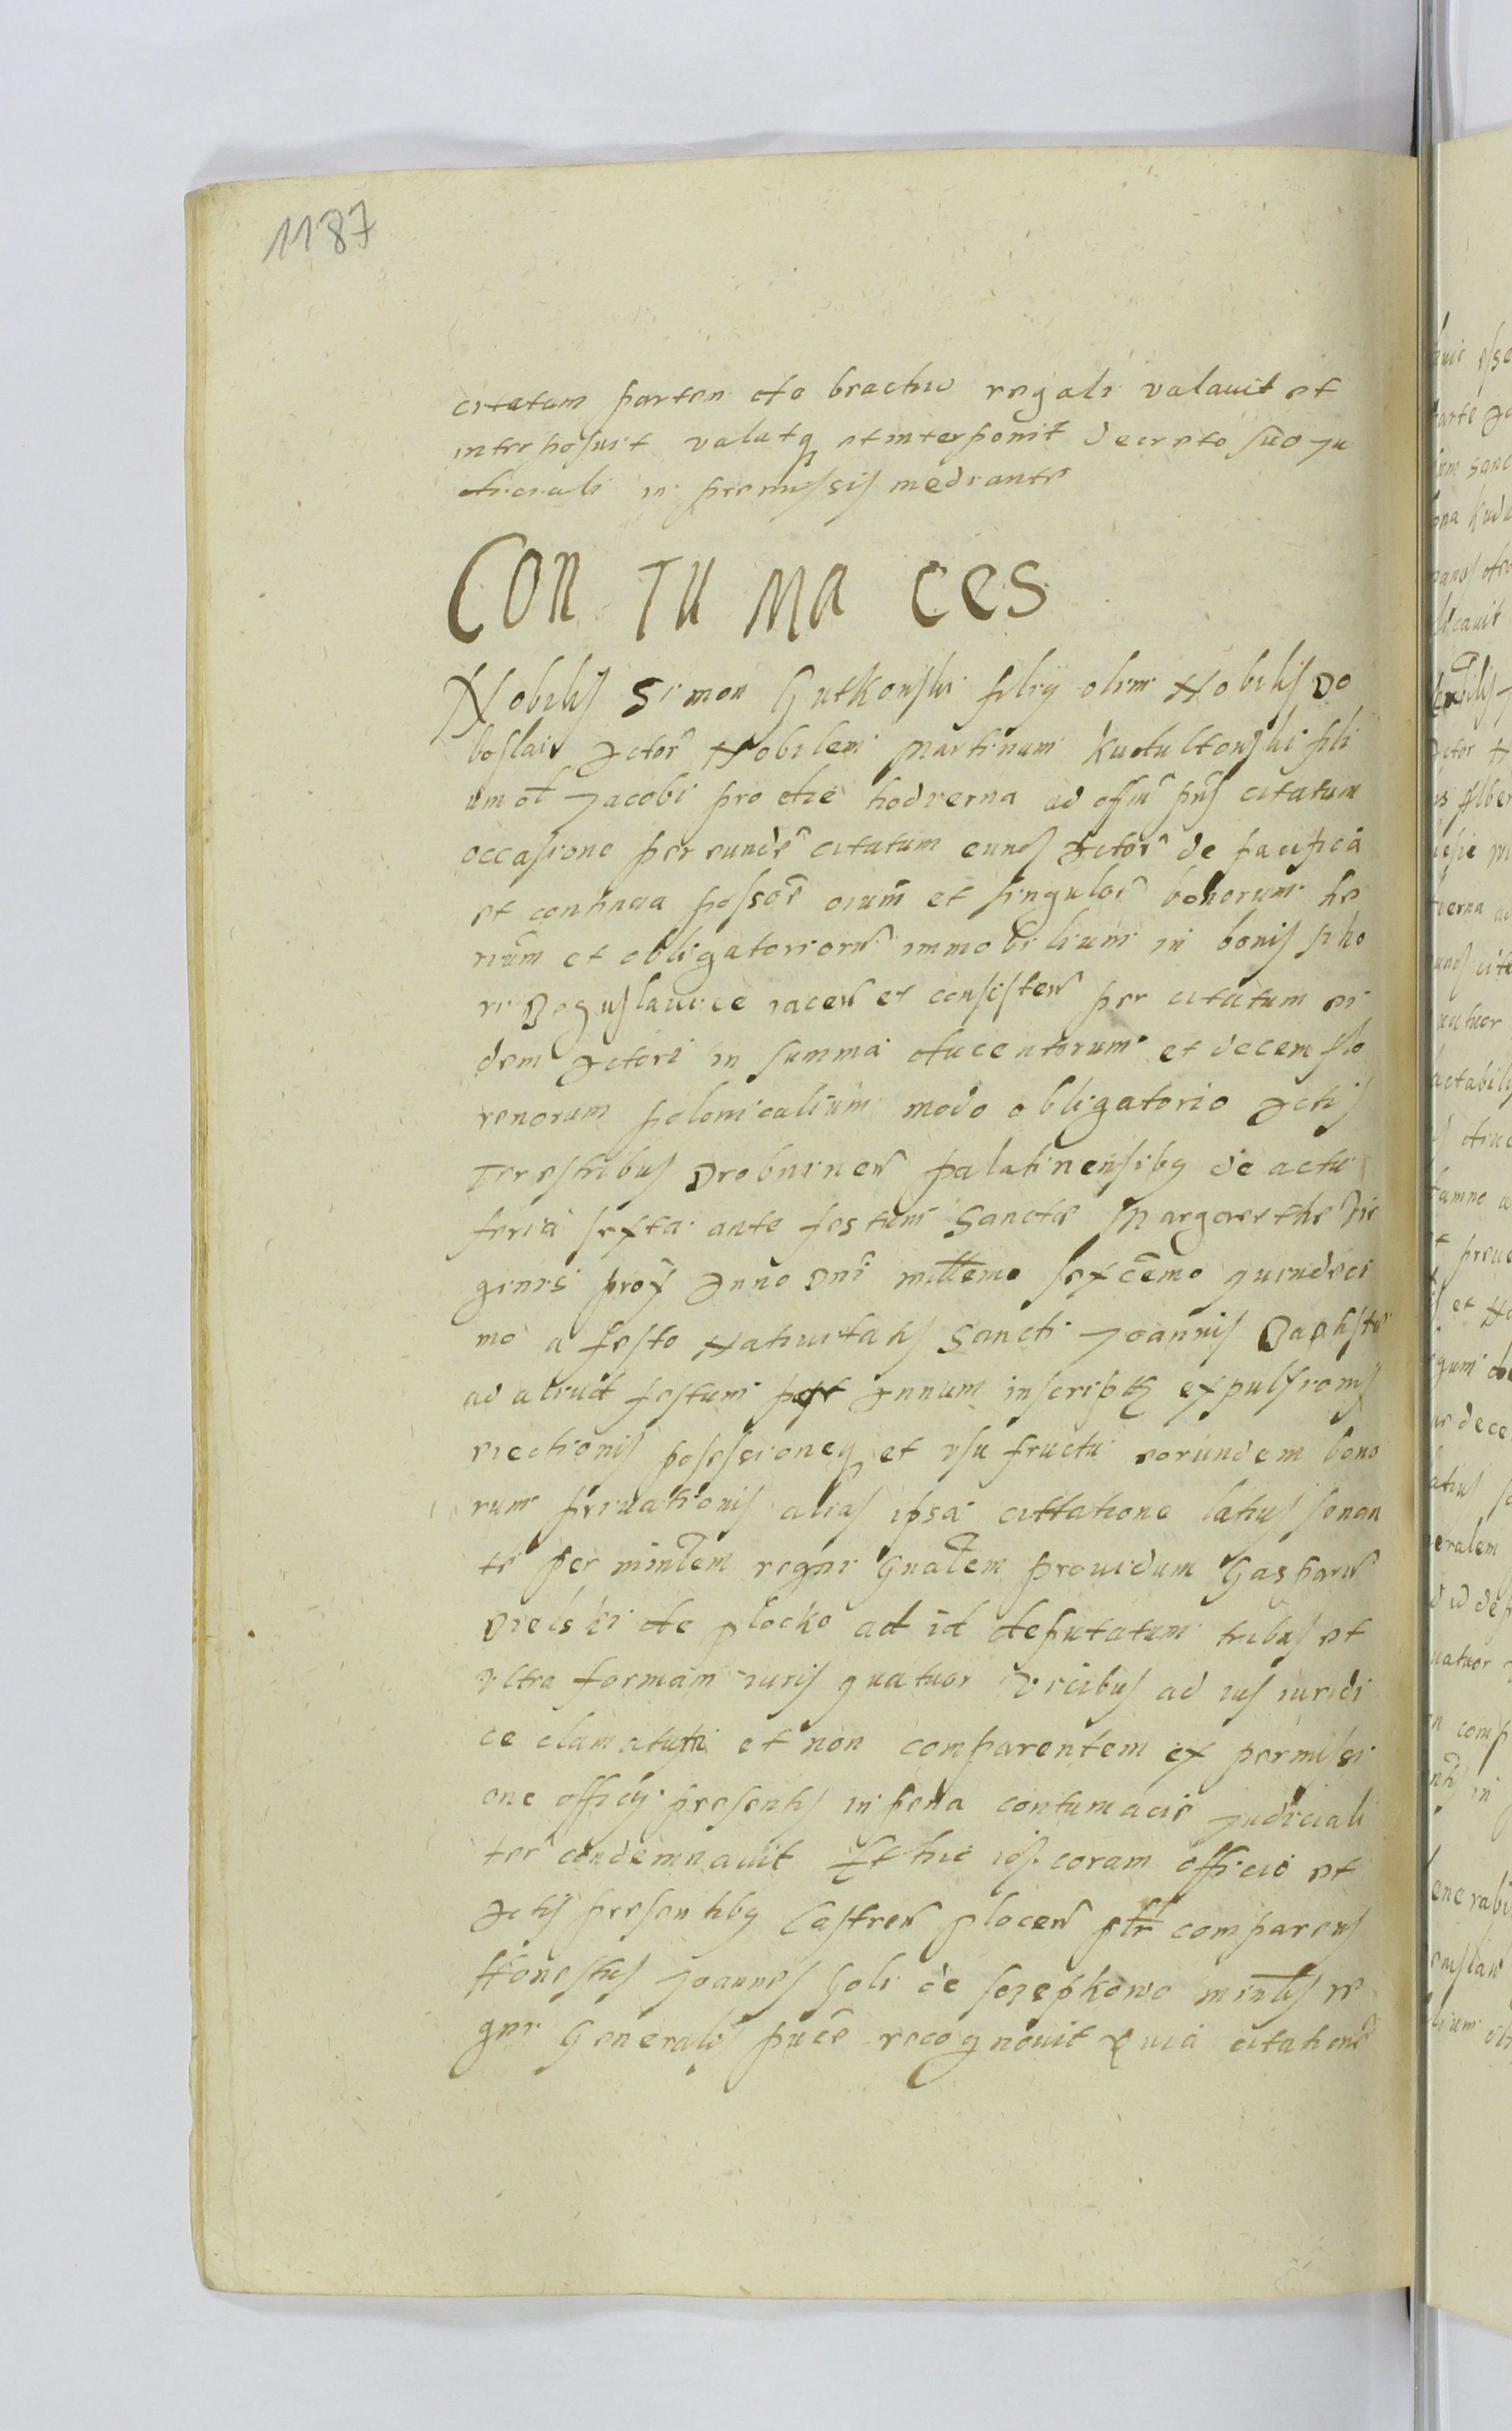 1187
citatam partem de brachio regali valauit et
interposuit valatq et interponit decreto suo Ju
diciali in premissis mediante
CON TU MA CES
Nobilis Simon Gutkowski filiy olim Nobilis Do
boslai Actor Nobilem Martinum filii
um ol Jacobi pro die hodierna ad offm pns citatum
occasione per eunde citatum eund Actore de pacifica
et continua possoe oium et singulor bonorum he
rium et obligatoriorum immobilium in bonis
ri Boguslauice iacen et consisten per citatum ei
dem Actori in summa ducentorum et decem flo
renorum polonicalium modo obligatorio Actis
Terestribus Drobninen palatinensibq de actu
feria sexta ante festum Sanctae Margarethe Vir
ginis proxi Anno Dni millemo sexcemo quindeci
mo a festo Natiuitatis Sancti Joannis Baptiste
ad aliud festum post Annum expulsionis
eiectionis possessioneq et vsu fructu eorundem bono
rum priuationis alias ipsa cittatione latius sonan
te per minlem regni Gnalem prouidum Gasparu
Bielski de Plocko ad id deputatum tribus et
vltra formam iuris quatuor vicibus ad ius iuridi
ce clamatum et non comparentem ex permissi
one officy presentis in pena contumacie Judiciali
ter condemnauit Et hic id coram officio et
Actis presentibq Castren Plocen plr comparens
Honestus Joannes Goli de minlis re
gni Generalis puce recognouit Quia citatione